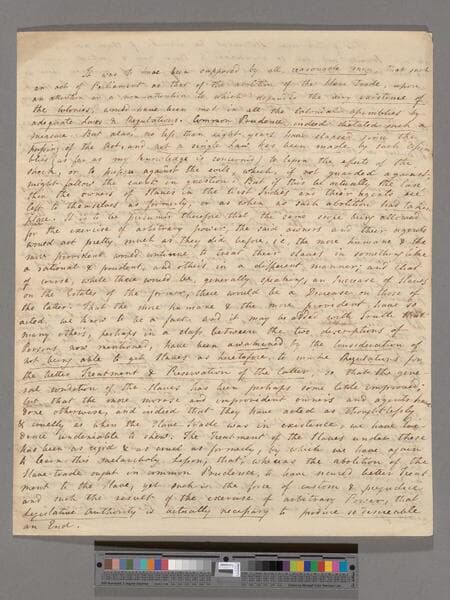 It was to have been supposed by all reasonable men, that such
an act of Parliament as that of the abolition of the Slave Trade, upon
an attention or a non-attention to which depended the very existence of
the Colonies, would have been met in all the Colonial assemblies by
adequate Laws & Regulations. Common Prudence indeed dictated such a
measure. But alas! no less than eight years have elapsed since the
passing of the Act, and not a single has been made by such
(as far as my knowledge is concerned) to lessen the effects of the
shock, or to prepare against the evils which, if not guarded against,
might follow the event in question. But if this be actually the case
then the owners of Slaves in the West Indies and their Agents are
left to themselves as formerly, or as when no such abolition had taken
place. It is to be presumed therefore that the same scope being allowed
for the exercise of arbitrary power, the said owners and their agents
would act pretty much as they did before, i.e. the more humane & the
more provident would continue to treat their slaves in something like
a rational & prudent, and others in a different manner; and that
of course, while there would be, generally speaking, an Increase of Slaves
on the Estates of the former, there would be a Decrease on those of
the latter. That the more humane & the more provident have so
acted we know to be a fact, and it may be added with Truth that
many others, perhaps in a class between the two descriptions of
Persons now mentioned, have been awakened by the Consideration of
not being able to get Slaves as heretofore, to make Regulations for
the better Treatment & Preservation of the latter, so that the gene
ral condition of the Slaves has been perhaps some little improved,
but that the more morose and improvident owners and agents have
done otherwise, and indeed that they have acted as thoughtlessly
& cruelly as when the Slave Trade was in existence, we have
undeniable to shew. The Treatment of the Slaves under these
has been as rigid & as cruel as formerly, by which we have again
to learn this melancholy Lesson, that, whereas the abolition of the
Slave trade ought in common Prudence to have secured better treat
ment to the Slave, yet such is the force of custom & prejudice
and such the result of the exercise of arbitrary Power, that
Legislative Authority is actually necessary to produce so desireable
an End.